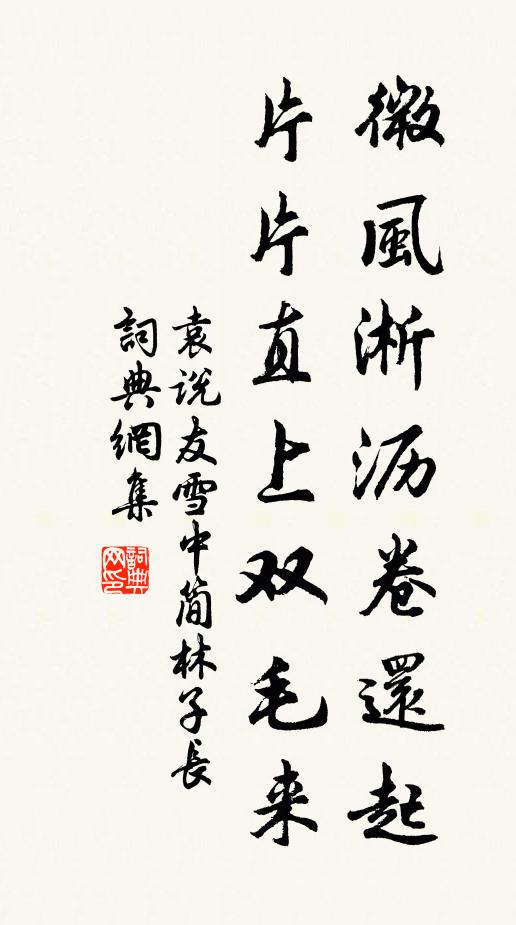 微風淅沥卷還起
片片直上双毛来
袁说友雪中简林子長
詞典網集
詞典网印